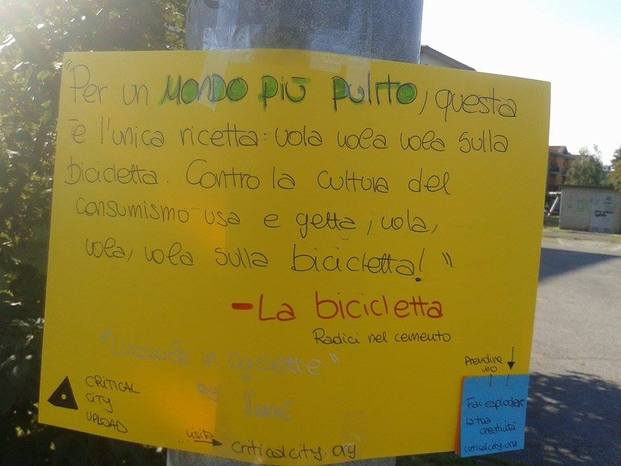 "Per un MONDO PIÙ PULITO, questa
è l'unica ricetta: vola vola vola sulla
bicicletta. Contro la cultura del
consumismo usa e getta, vola,
vola, vola sulla bicicletta! "
- La bicicletta
Radici nel cemento
CRITICAL
CITY
UPLOAD
visita
criticalcity.org
Prendine
uno
Fai esplodere
la tua
creatività
criticalcity.org